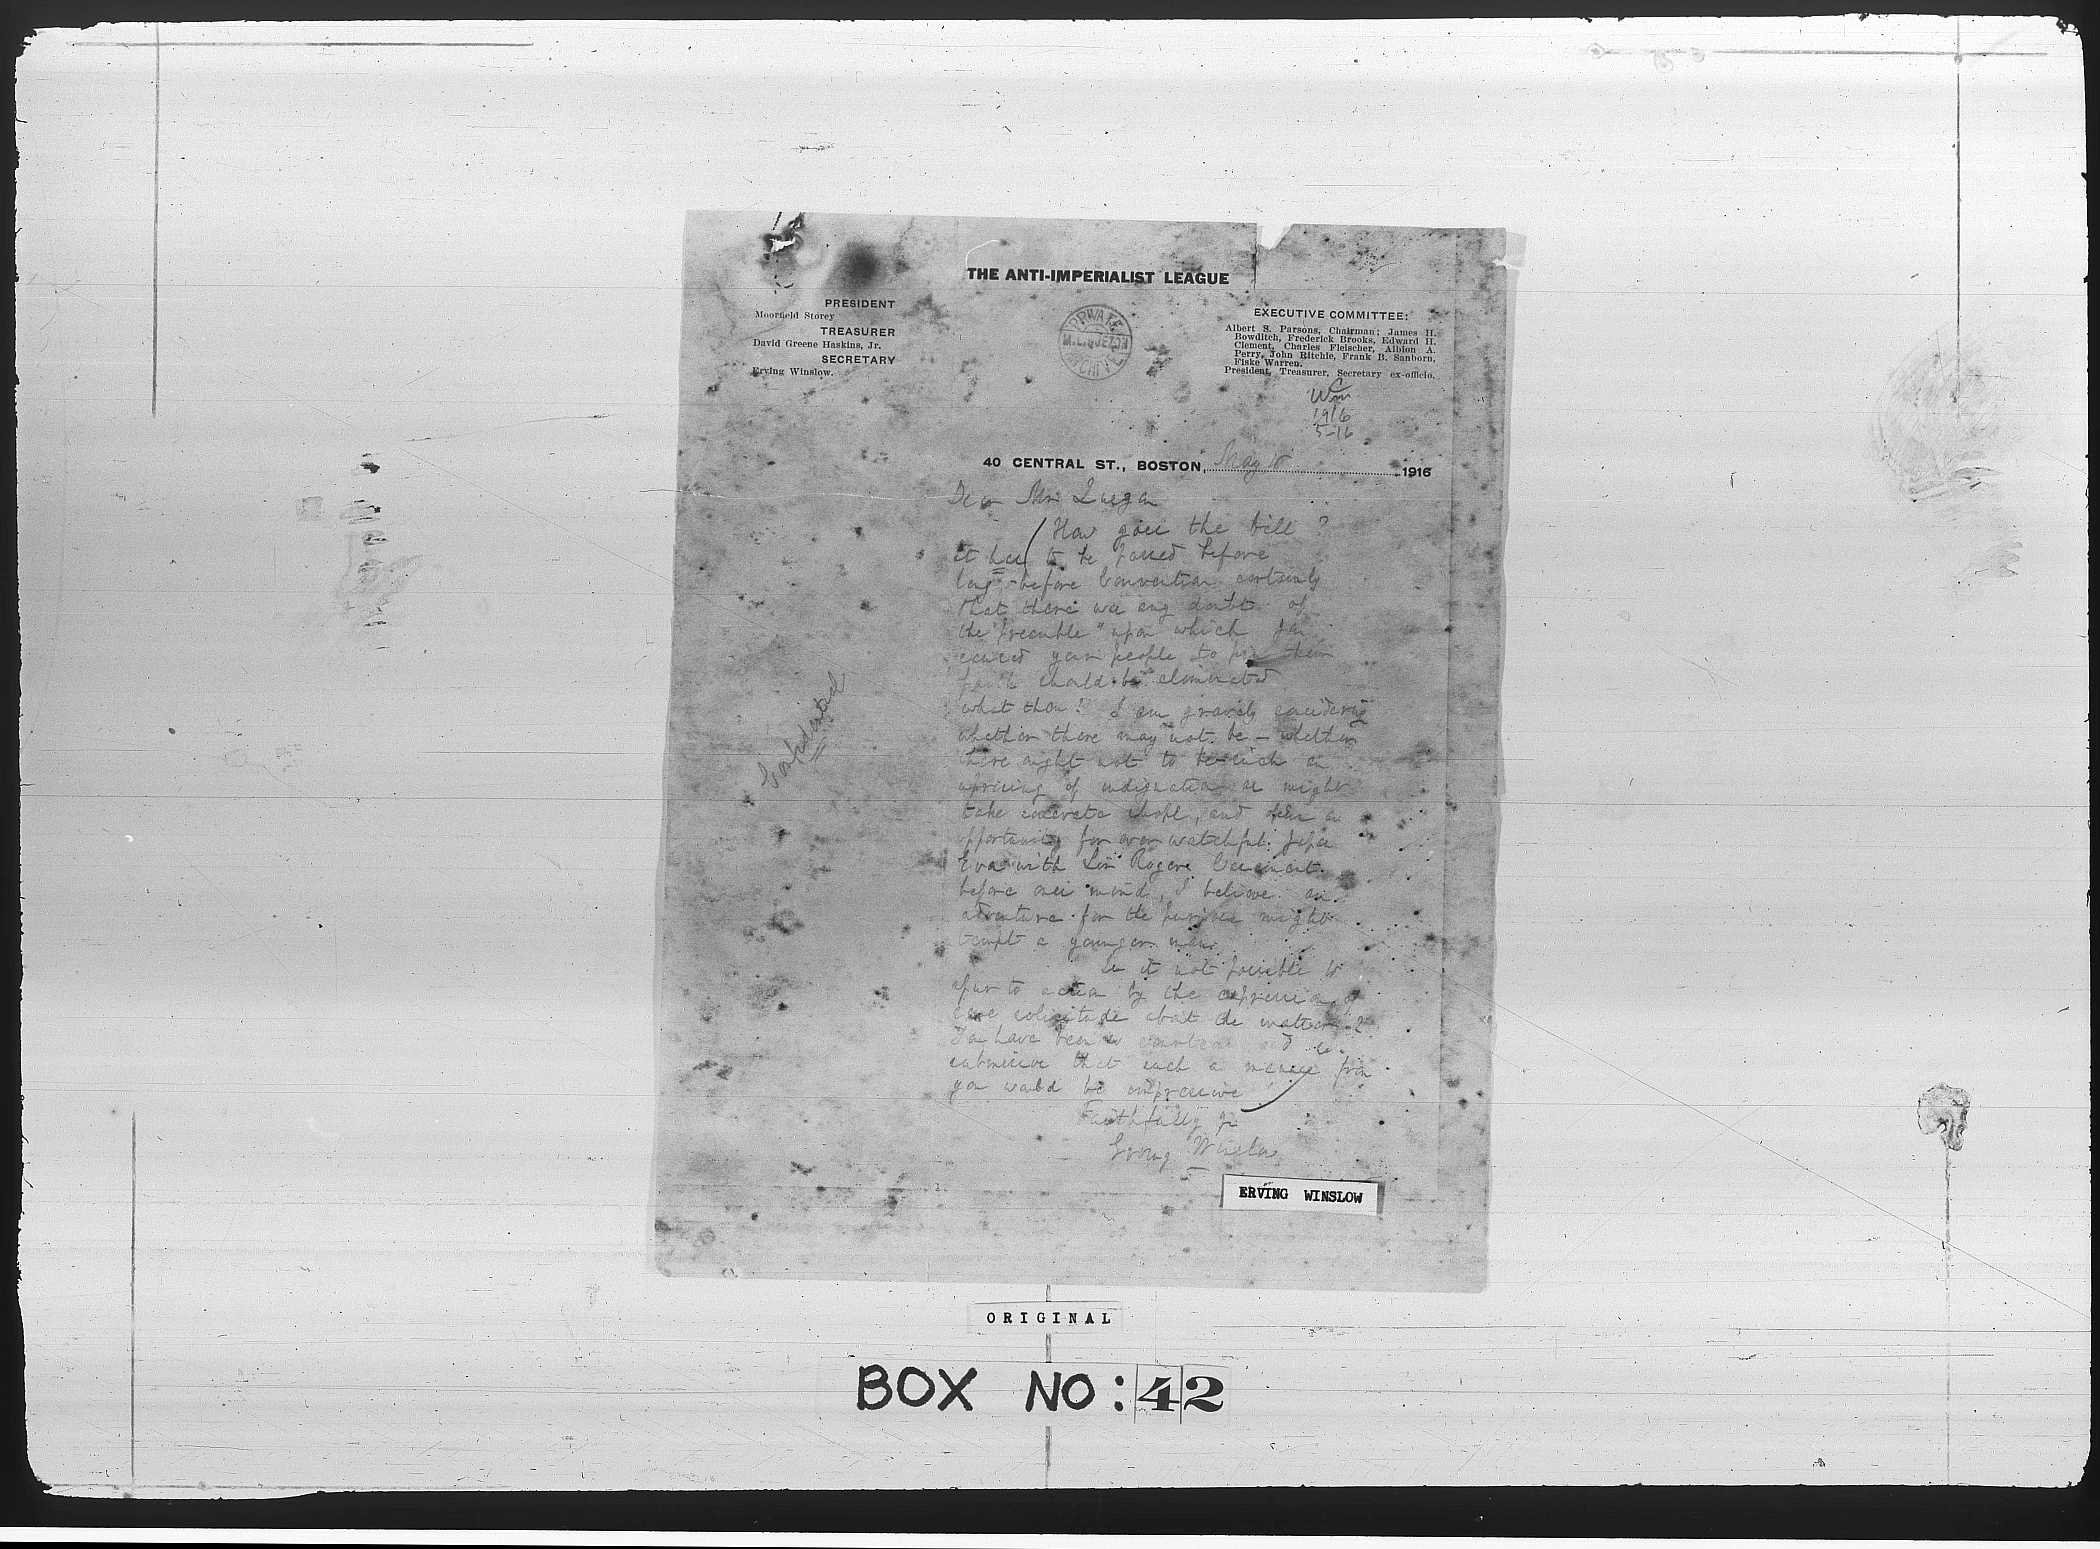 THE ANTI-IMPERIALIST LEAGUE
PRESIDENT
Moorfield Storey
TREASURER
David Greene Haskins, Jr.
SECRETARY
Erving Winslow.
PRIVATE
M.L.QUEZON
EXECUTIVE COMMITTEE:
Albert S. Parsons, Chairman; James H.
Bowditch, Frederick Brooks, Edward H.
Clement, Charles Fleischer, Albion A.
Perry, John Ritchie, Frank B. Sanborn,
Fiske Warren.
President, Treasurer, Secretary ex-officio.
1916
5-16
40 CENTRAL ST., BOSTON, May 1916
Dear Mr. Quezon
How goes the bill?
It has to be passed before
long - before Convention certainly
that there was any doubt of
the "preamble" upon which you
caused your people to pin their
faith should be eliminated
what then? I am gravely considering
whether there may not be - whether
there ought not to be such an
uprising of indignation as might
take concrete shape, and offer an
opportunity for ever watchful Japan
Even with Sir Roger Casement
before one's mind, I believe an
adventure for the purpose might
tempt a younger man.
Is it not possible to
spur to action by the expression of
some solicitude about the matter?
You have been so and so
submissive that such a menace from
you would be impressive
Faithfully yrs
Erving Winslow
Confidential
ERVING WINSLOW
ORIGINAL
BOX NO: 42